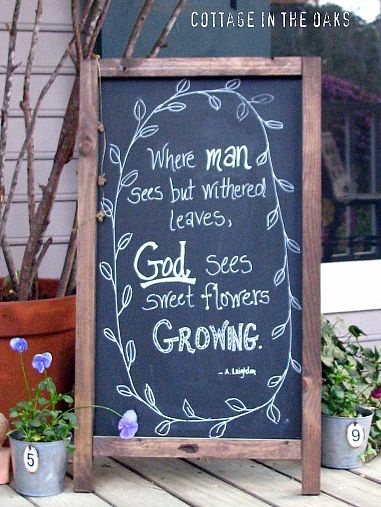 COTTAGE IN THE OAKS
Where man
sees but withered
leaves,
God sees
sweet flowers
GROWING.
- A. Laighton
5
9